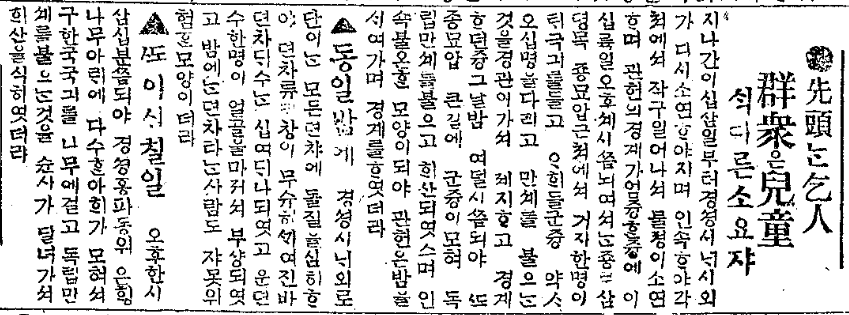 先頭는乞人
群衆은兒童
석다른소요쟈
지나간이십삼일부터경셩시닉시외
가 다시소연하야지며 인속하야각
쳐에셔 작구일어나셔 물졍이소연
하며 관헌의경계가엄즁한즁에 이
십륙일오후 쯤되여셔는종로삼
뎡목 종묘압근쳐에셔 거지한명이
태극긔를들고 ᄋᆞ희들군즁 약ᄉᆞ
오십명을다리고 만셰를 불으는
것을경관이가셔 제지하고 경계
하던즁그날밤 여덜시쯤되야 ᄯᅩ
종묘압 큰길에 군즁이모혀 독
립만셰를불으고 헤산되엿스며 인
속불오할 모양이되야 관헌은밤을
서여가며 경계를하엿더라
▲동일밤에 경셩시닉외로
단이는 모든뎐챠에 돌질을심히하
야 뎐챠류리창이 무슈히세여진바
뎐챠다수는 십여디나되엿고 운뎐
수한명이 얼골을마져셔 부상되엿
고 밤에는뎐차타는사람도 쟈못위
험한모양이더라
▲ᄯᅩ이십칠일 오후한시
삼십분쯤되야 경셩홍파동위 은힝
나무아리에 다수한아희가 모혀셔
구한국국긔를 나무에걸고 독립만
셰를불으는것을 순사가 달녀가셔
헤산을식히엿더라